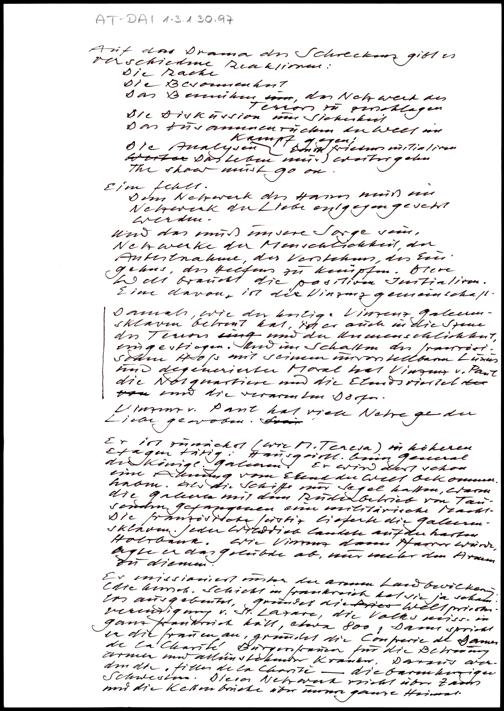 AT-DAI 1.3.1 30.97
Auf das Drama des Schreckens gibt es
verschiedene Reaktionen:
Die Rache
Die Besonnenheit
Das Bemühen um, das Netzwerk des
Terrors zu zerschlagen
Die Diskussion um Sicherheit
Das Zusammenrücken der Welt im
Kampf gegen
Die Analysen
Das Leben muss weitergehn
The show must go on.
Eine fehlt.
Dem Netzwerk des Hasses muß ein
Netzwerk der Liebe entgegengesetzt
werden.
Und das muß unsere Sorge sein,
Netzwerke der Menschlichkeit, der
Anteilnahme, des Verstehens, des Ein-
gehens, des Helfens zu knüpfen. Diese
Welt braucht die positiven Initiativen.
Eine davon, ist die Vinzenzgemeinschaft.
Damals, wie der heilige Vinzenz Galeeren-
sklaven betreut hat, ist er auch in die Szene
des Terrors und der Unmenschlichkeit
eingestiegen. Und im Schatten des französi-
schen Hofs mit seinem unvorstellbaren Luxus
und degenerierter Moral hat Vinzenz v. Paul
die Notquartiere und die Elendsviertel
und die verarmten Dörfer.
Vinzenz v. Paul hat viele Netze der
Liebe gewoben.
Er ist zunächst (wie M. Teresa) in höheren
Etagen tätig: beim General
der königl. Galeeren. Er wird dort schon
eine Ahnung vom Elend der Welt bekommen
haben. Als die Schiffe nur Segel hatten, waren
die Galeeren mit dem Ruderbetrieb von Tau-
senden Gefangenen eine militärische Macht.
Die französische Justiz lieferte die Galeeren-
sklaven. landete auf der harten
Holzbank. Wie Vinzenz dann Pfarrer wurde,
legte er das Gelübde ab, nur mehr den Armen
zu dienen.
Er missioniert unter der armen Landbevölkerung
Schicht in Frankreich hat sie ja scham-
los ausgebeutet, gründet die Weltpriester-
vereinigung v. St. Lazare, die Volksmissionen
ganz Frankreich hält, etwa 800! Dann spricht
er die Frauen an, gründet die Confrerie de Dames
de la Charité Bürgerfrauen für die Betreuung
armer und alleinstehender Kranker. Daraus wer-
den die "filles de la Charité" – die barmherzigen
Schwestern. Dieses Netzwerk reicht über Zams
und die Kettenbrücke über unsere ganze Heimat